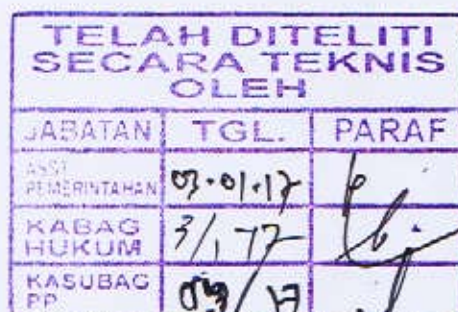 TELAH DITELITI
SECARA TEKNIS
OLEH
JABATAN TGL. PARAF
ASST PEMERINTAHAN 03-01-17
KABAG HUKUM 3/1-17
KASUBAG PP